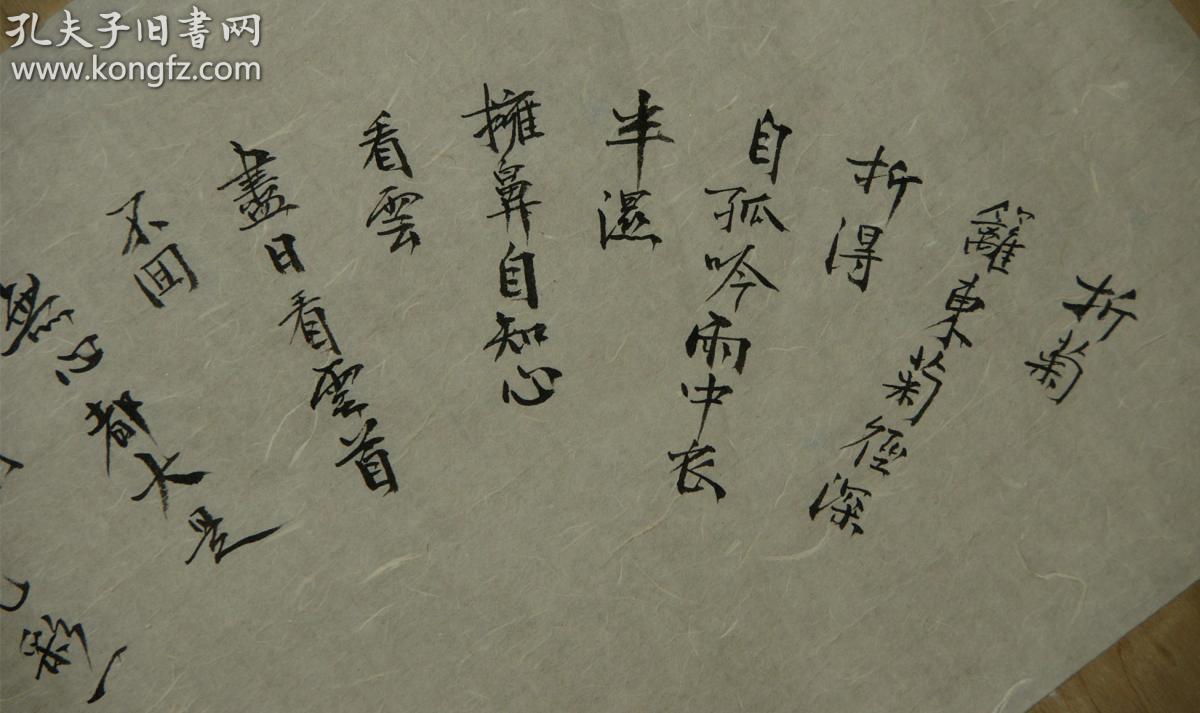 孔夫子旧書网
www.kongfz.com
折菊
籬東菊徑深
折得
自孤吟雨中衣
半濕
擁鼻自知心
看雲
盡日看雲首
不囬
無心都大是
彩